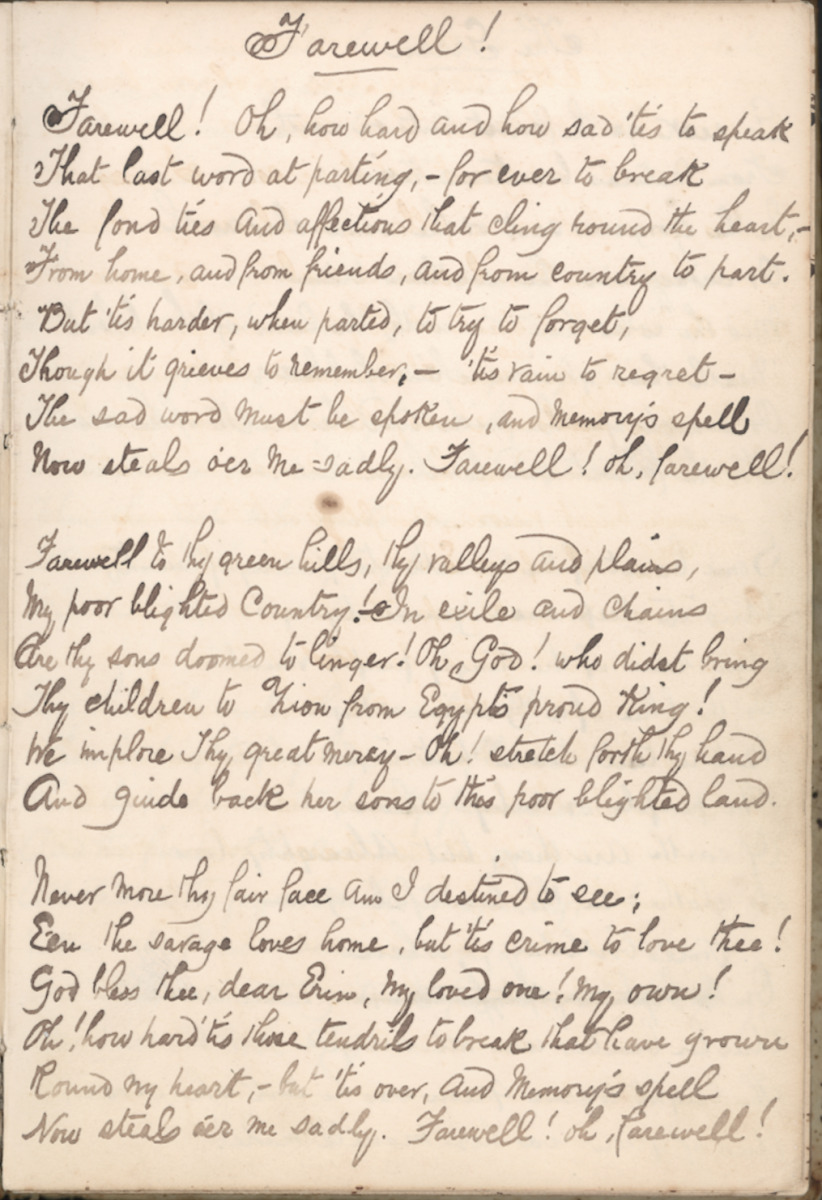 Farewell!
Farewell! Oh, how hard and how sad 'tis to speak
That last word at parting, - for ever to break
The fond ties and affections that cling round the heart, -
From home, and from friends, and from country to part.
But 'tis harder, when parted, to try to forget,
Though it grieves to remember, - 'tis vain to regret -
The sad word must be spoken, and Memory's spell
Now steals o'er me sadly. Farewell! oh, farewell!
Farewell to thy green hills, thy valleys and plains,
My poor blighted Country! - In exile and chains
Are thy sons doomed to linger! Oh God! who didst bring
Thy children to Zion from Egypt's proud King!
We implore Thy great mercy - Oh! stretch forth thy hand
And guide back her sons to this poor blighted land.
Never more thy fair face am I destined to see;
E'en the savage loves home, but 'tis crime to love thee!
God bless thee, dear Erin, my loved one! my own!
Oh! how hard 'tis those tendrils to break that have grown
Round my heart, - but 'tis over, and Memory's spell
Now steals o'er me sadly. Farewell! oh, farewell!